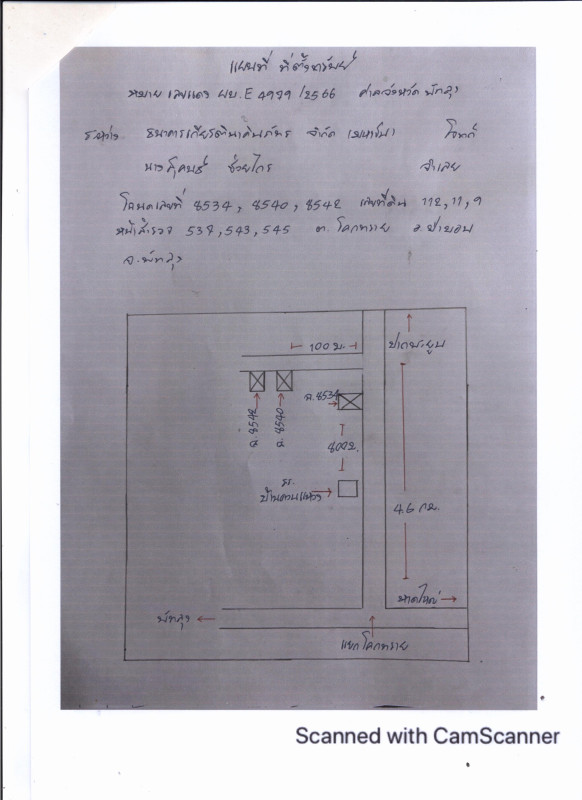 แผนที่ ที่ตั้งทรัพย์
หมายเลขแดง ผบ.E 4979/2566 ศาลจังหวัดพัทลุง
ระหว่าง ธนาคารเกียรตินาคินภัทร จำกัด (มหาชน) โจทก์
นาง ช่วยไกร จำเลย
โฉนดเลขที่ 8534, 8540, 8542 เลขที่ดิน 112, 11, 9
หน้าสำรวจ 537, 543, 545 ต. โคกทราย อ. ป่าบอน
จ. พัทลุง
100 ม.
ปากพะยูน
ฉ. 8534
ฉ. 8542
ฉ. 8540
800 ม.
รร.
บ้านควนแหวง
4.6 กม.
หาดใหญ่
พัทลุง
แยกโคกทราย
Scanned with CamScanner